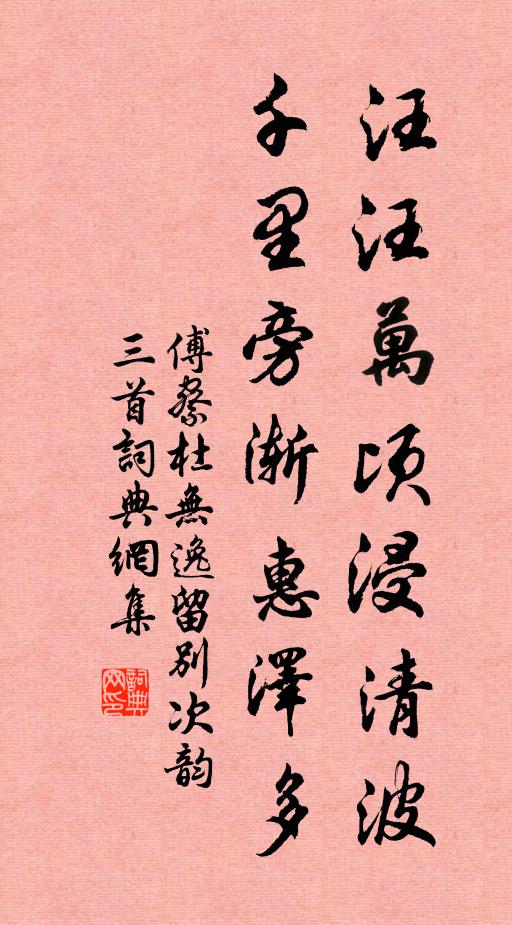 汪汪萬頃浸清波
千里旁漸惠澤多
傅察杜無逸留別次韵
三首詞典網集
詞典網印